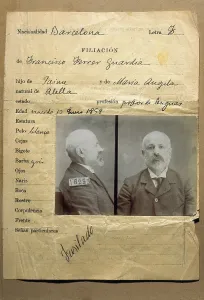 Nacionalidad Barcelona Letra F
FILIACIÓN
de Francisco Ferrer Guardia
hijo de Jaime y de María Angela
natural de Alella
estado profesión profesor de lenguas
Edad nacido
Estatura
Pelo blanco
Cejas
Bigote
Barba gris
Ojos
Nariz
Boca
Rostro
Corpulencia
Frente
Señas particulares
Fusilado